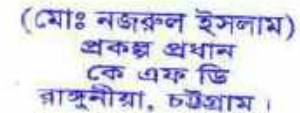 (মোঃ নজরুল ইসলাম)
প্রকল্প প্রধান
কে এফ ডি
রাঙ্গুনীয়া, চট্টগ্রাম।